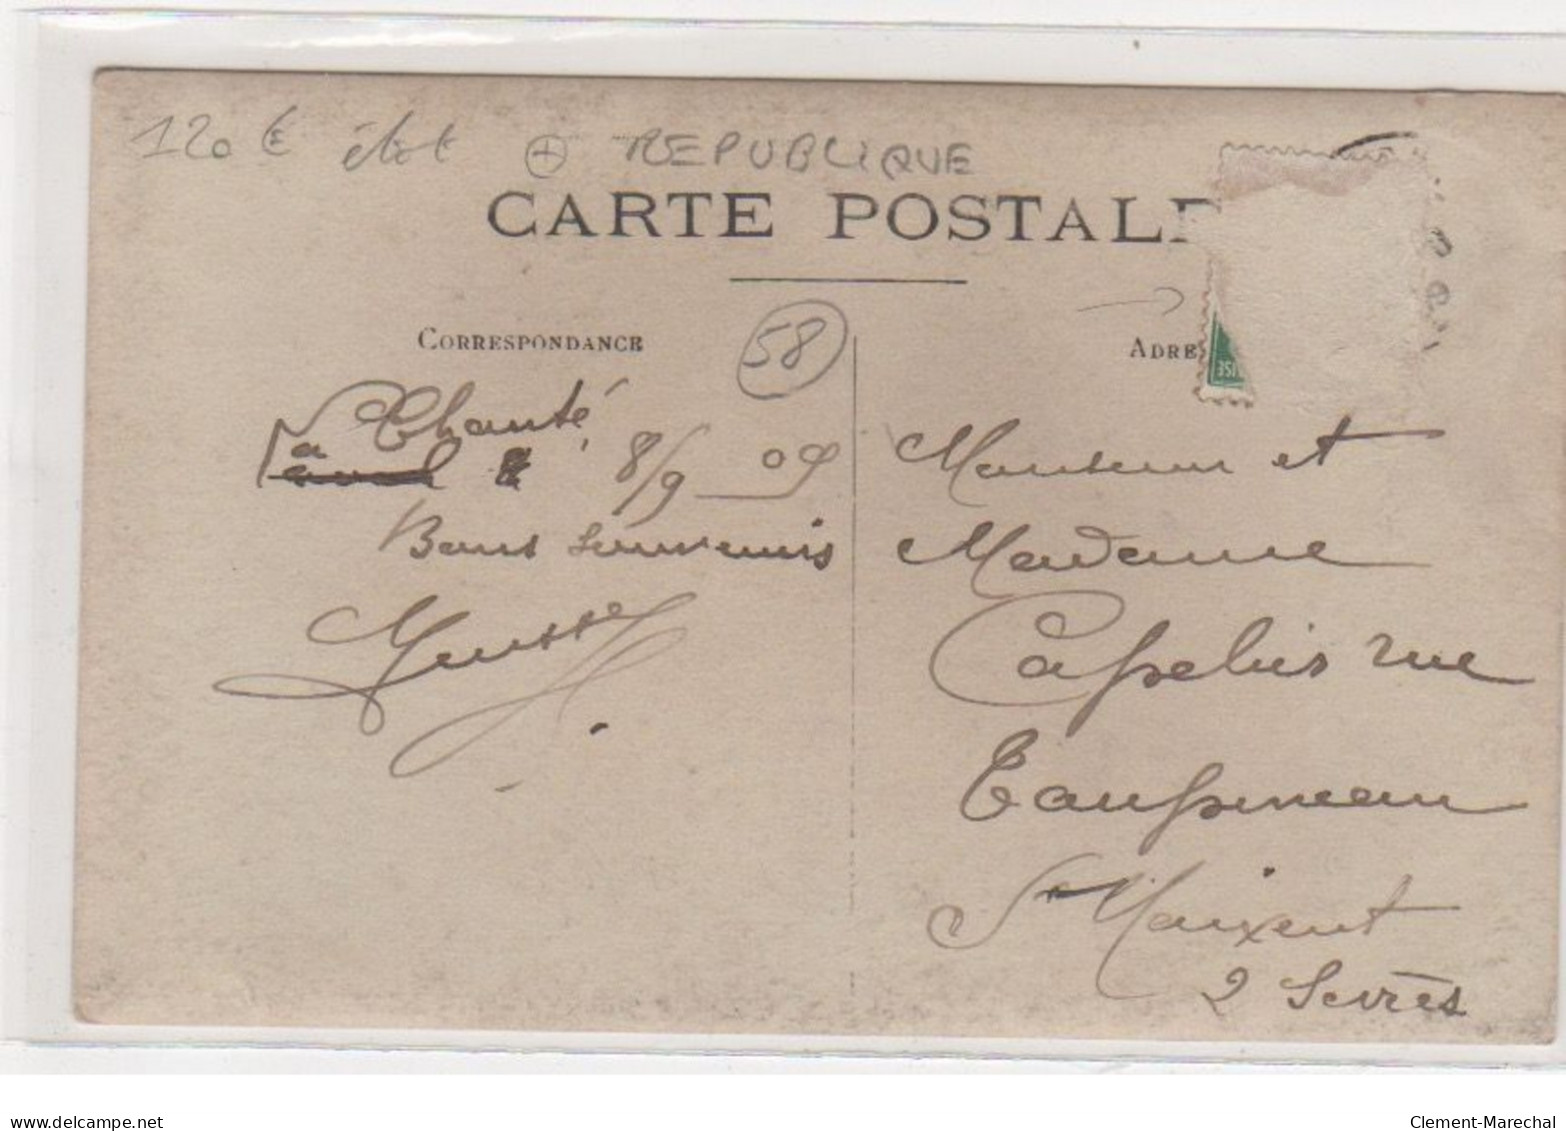 120 € état + REPUBLIQUE
CARTE POSTALE
CORRESPONDANCE
58
ADRE
à Chanté
8/9 09
Bons souvenirs
Monsieur et
Madame
rue
Taupineau
St Maixent
2 Sèvres
delcampe.net
Clement-Marechal